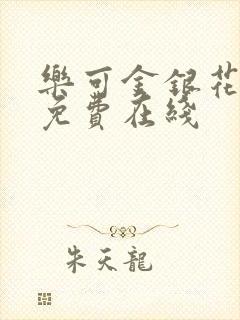 樂可金銀花
免費在綫
朱天龍